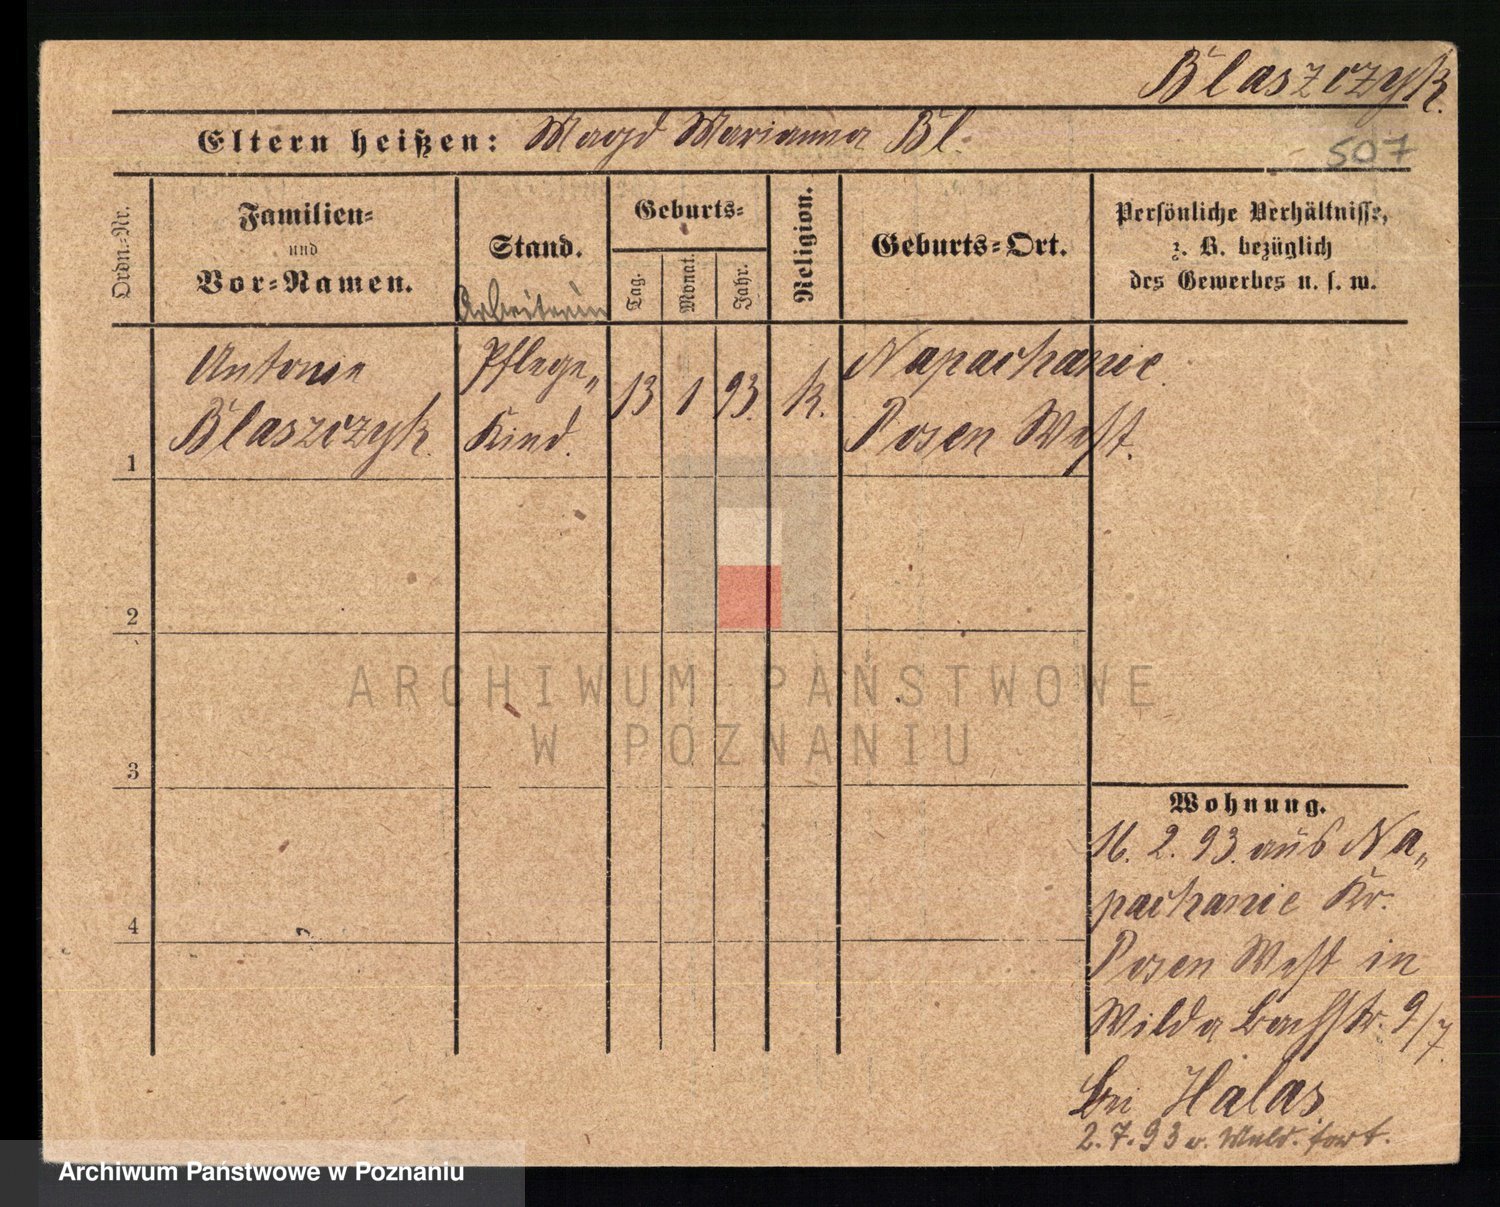 Blaszczyk.
Eltern heißen: Magd Marianna Bl.
507
Ordn.-Nr.
Familien-
und
Vor-Namen.
Stand.
Arbeiterin
Geburts-
Tag.
Monat.
Jahr.
Religion.
Geburts-Ort.
Persönliche Verhältnisse,
z. B. bezüglich
des Gewerbes u. s. w.
1
Antonie
Blaszczyk.
Pflege-
Kind.
13
1
93.
k.
Napachanie
Posen West.
2
3
4
ARCHIWUM PAŃSTWOWE
W POZNANIU
Wohnung.
16. 2. 93. aus Na-
pachanie Kr.
Posen West in
Wilda Bachstr. 9/7.
bei Halas
2.7.93 fort.
Archiwum Państwowe w Poznaniu